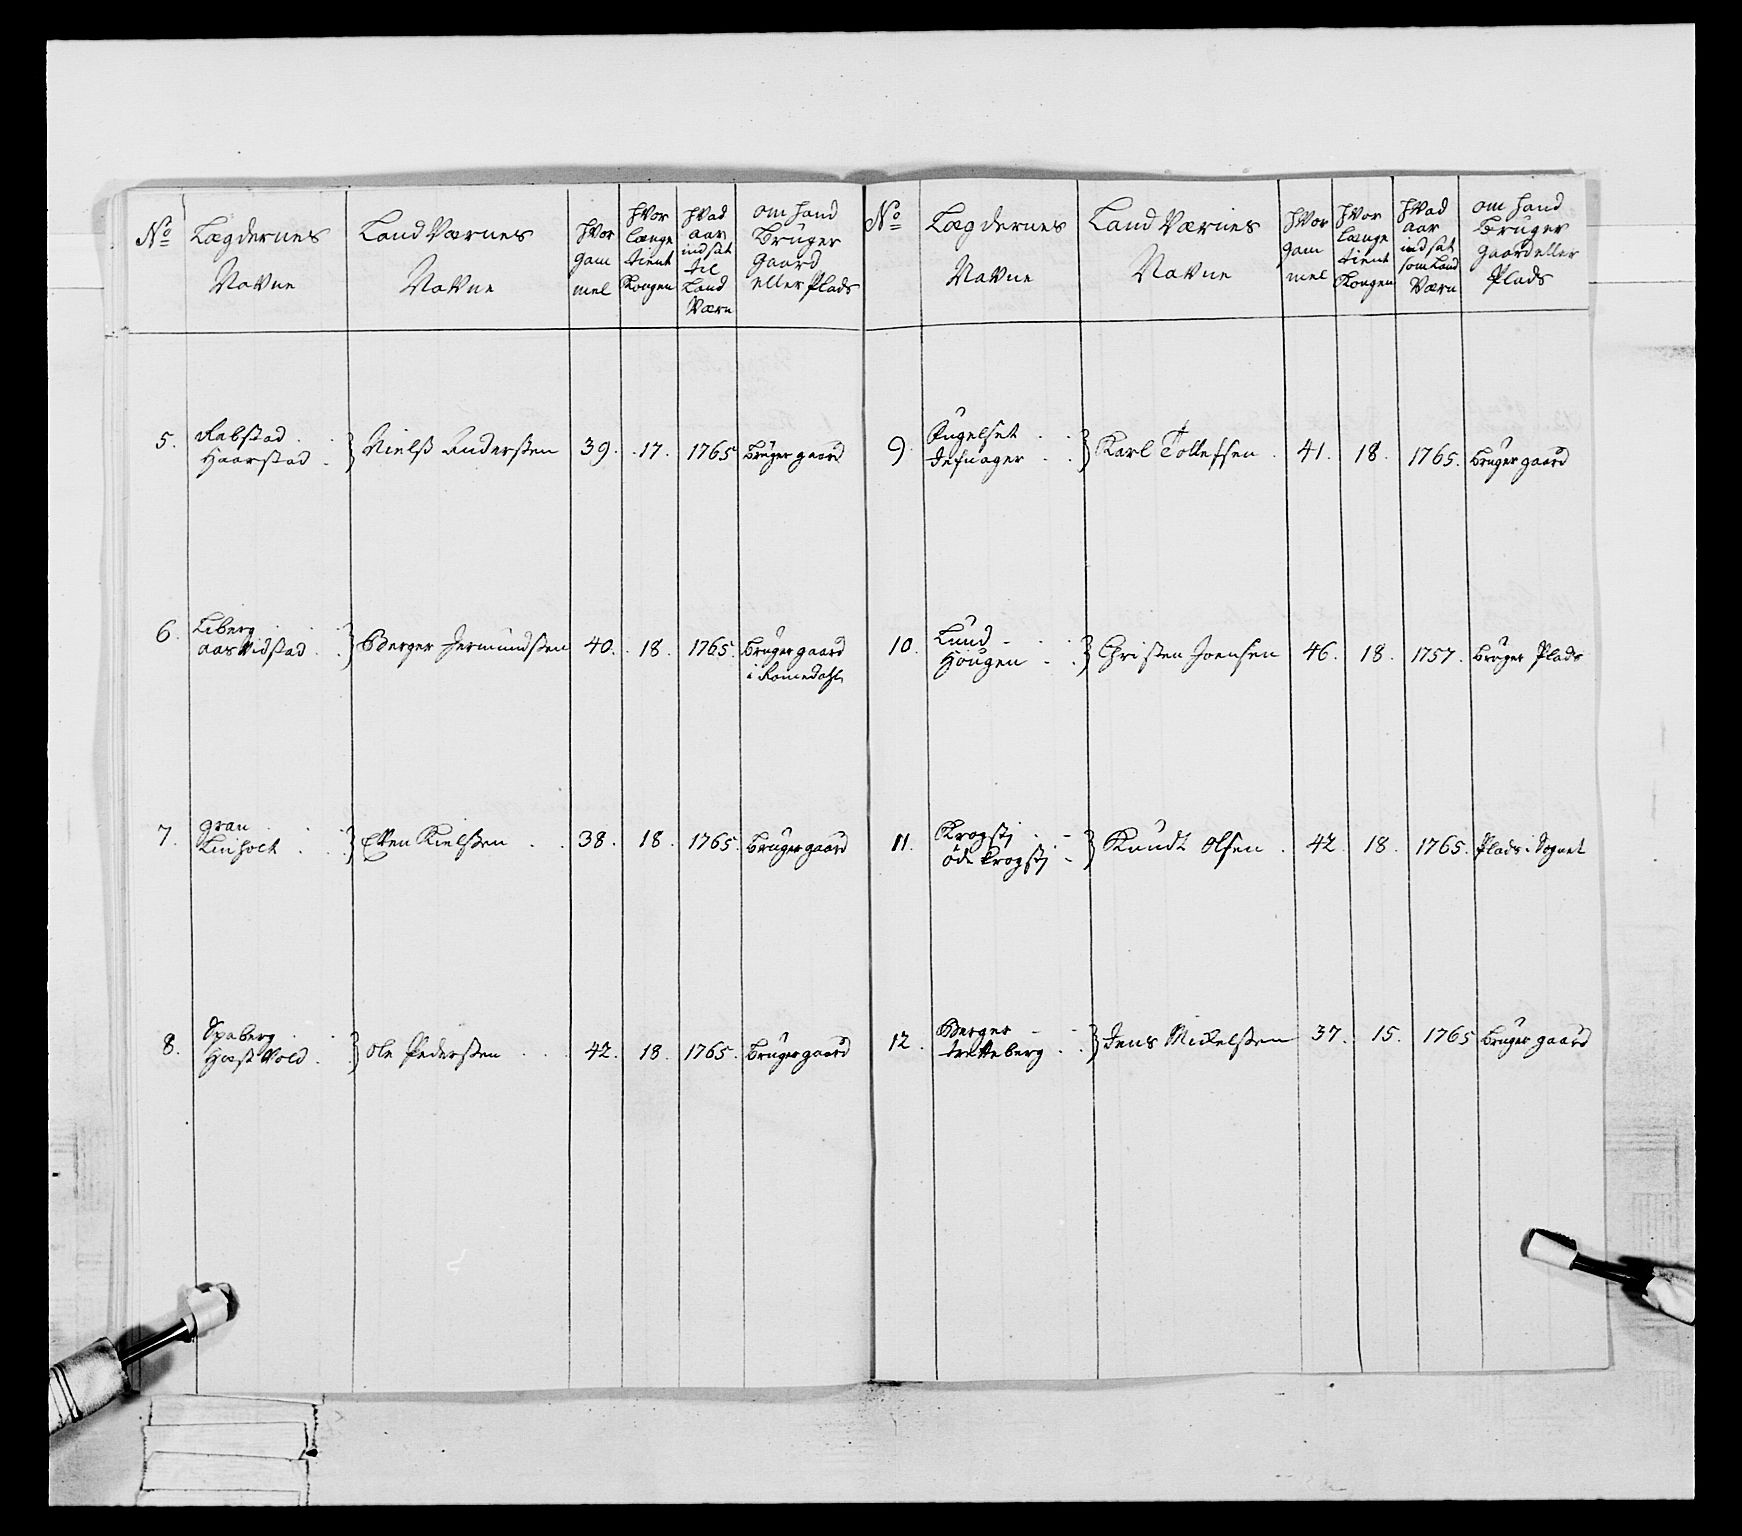 No
Lægdernes
Navne
Land Værnes
Navne
Hvor
gam
mel
Hvor
længe
tient
Kongen
Hvad
aar
indsat
til
Land
Værn
om hand
Bruger
gaard
eller Plads
5.
Rabstad
Haarstad
Nielß Anderßen
39.
17.
1765
Bruger gaard
6.
Liberg
Aas Vidstad
Berger Jermundßen
40.
18.
1765.
Bruger gaard
i Romedahl
7.
Gran
Linholt
Even Kielßen
38.
18.
1765.
Bruger gaard
8.
Spaberg
Hæst Vold
Ole Pederßen
42.
18.
1765.
Bruger gaard
No
Lægdernes
Navne
Land Værnes
Navne
Hvor
gam
mel
Hvor
længe
tient
Kongen
Hvad
aar
indsat
som Land
Værn
om hand
Bruger
gaard eller
Plads
9.
Kugelset
Karl Tollefsen
41.
18.
1765.
Bruger gaard
10.
Lund
Hougen
Christen Joensen
46.
18.
1757.
Bruger Plads
11.
Krogstj
öde Krogstj
Knudt Olsen
42.
18.
1765.
Plads i Sognet
12.
Berger
Tretteberg
Jens Mickelßen
37.
15.
1765
Bruger gaard